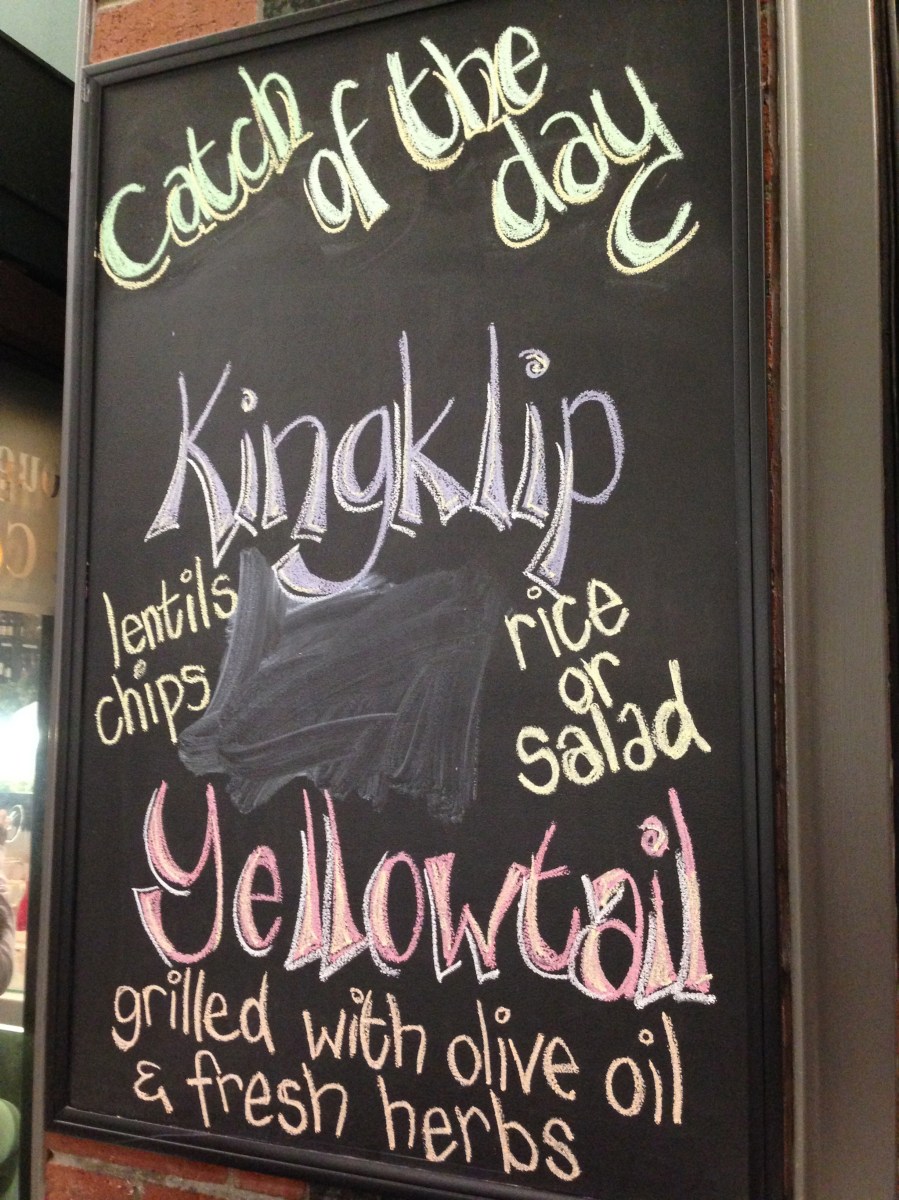 Catch of the day
Kingklip
lentils
chips
rice
or
salad
Yellowtail
grilled with olive oil
& fresh herbs